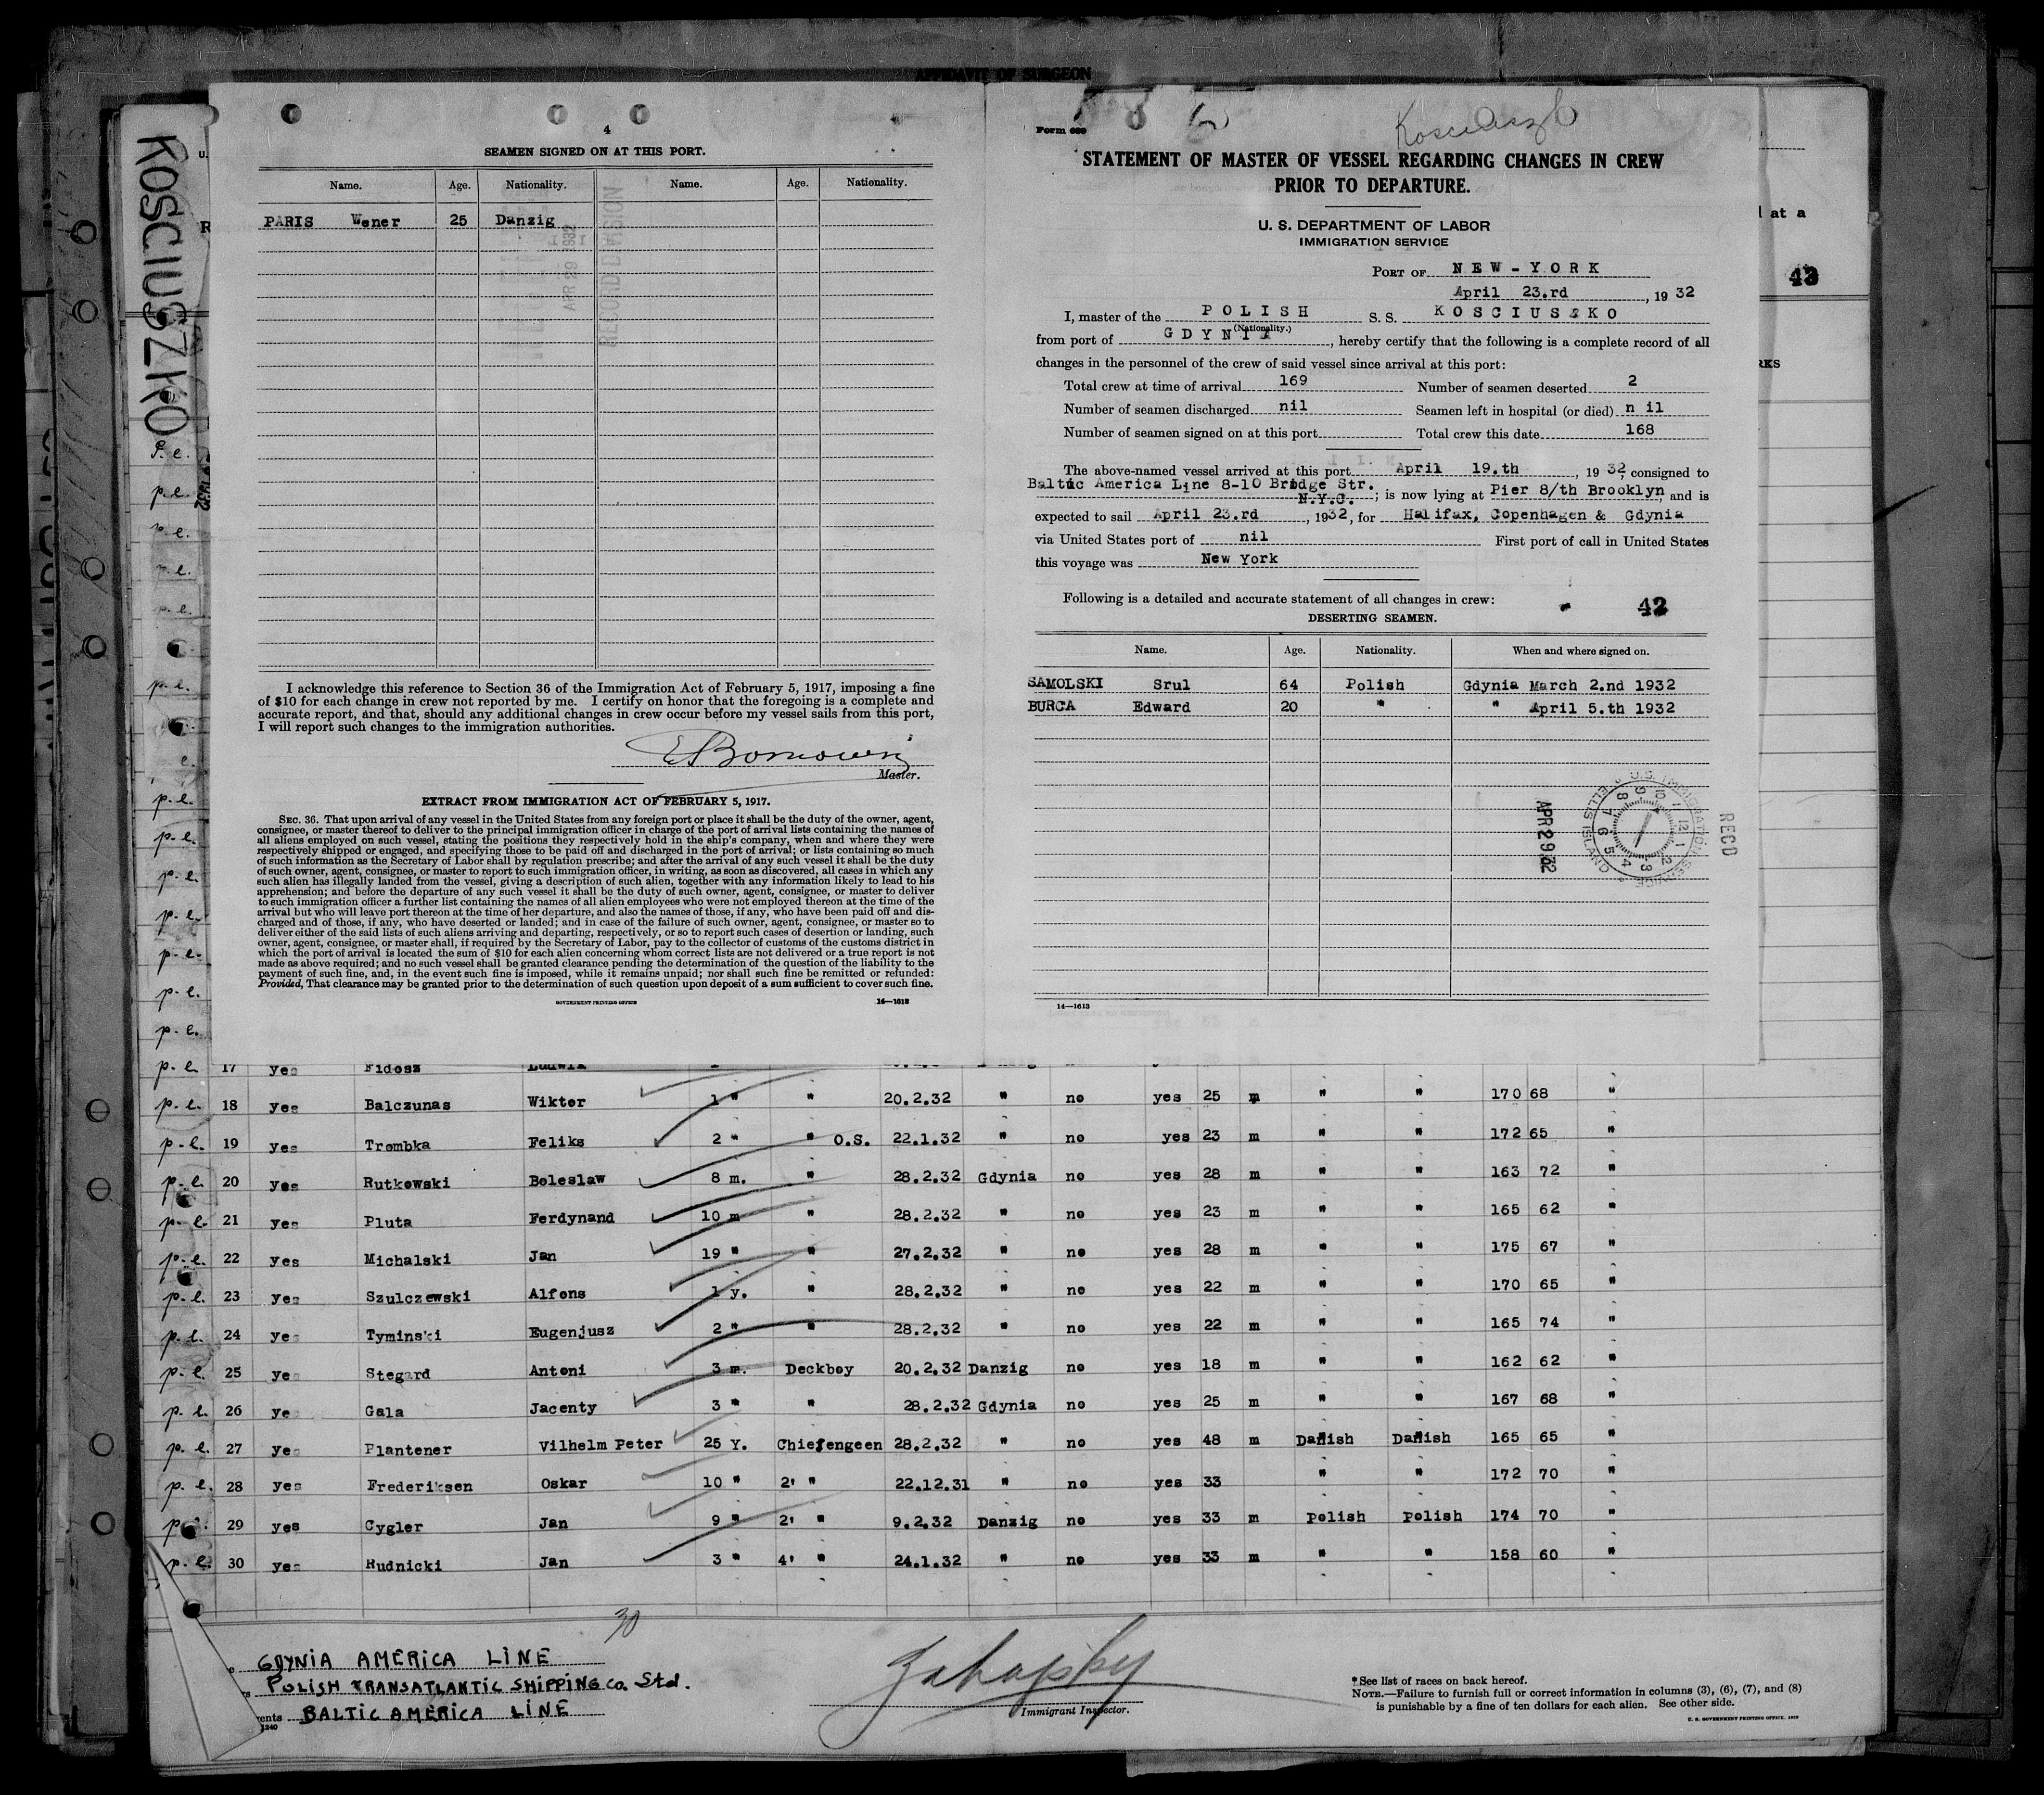 AFFIDAVIT OF SURGEON
KOSCIUSZKO
4
SEAMEN SIGNED ON AT THIS PORT.
Name. Age. Nationality. Name. Age. Nationality.
PARIS Wener 25 Danzig
APR 29 1932
RECORD DIVISION
I acknowledge this reference to Section 36 of the Immigration Act of February 5, 1917, imposing a fine
of $10 for each change in crew not reported by me. I certify on honor that the foregoing is a complete and
accurate report, and that, should any additional changes in crew occur before my vessel sails from this port,
I will report such changes to the immigration authorities.
Master.
EXTRACT FROM IMMIGRATION ACT OF FEBRUARY 5, 1917.
SEC. 36. That upon arrival of any vessel in the United States from any foreign port or place it shall be the duty of the owner, agent,
consignee, or master thereof to deliver to the principal immigration officer in charge of the port of arrival lists containing the names of
all aliens employed on such vessel, stating the positions they respectively hold in the ship's company, when and where they were
respectively shipped or engaged, and specifying those to be paid off and discharged in the port of arrival; or lists containing so much
of such information as the Secretary of Labor shall by regulation prescribe; and after the arrival of any such vessel it shall be the duty
of such owner, agent, consignee, or master to report to such immigration officer, in writing, as soon as discovered, all cases in which any
such alien has illegally landed from the vessel, giving a description of such alien, together with any information likely to lead to his
apprehension; and before the departure of any such vessel it shall be the duty of such owner, agent, consignee, or master to deliver
to such immigration officer a further list containing the names of all alien employees who were not employed thereon at the time of the
arrival but who will leave port thereon at the time of her departure, and also the names of those, if any, who have been paid off and dis-
charged and of those, if any, who have deserted or landed; and in case of the failure of such owner, agent, consignee, or master so to
deliver either of the said lists of such aliens arriving and departing, respectively, or so to report such cases of desertion or landing, such
owner, agent, consignee, or master shall, if required by the Secretary of Labor, pay to the collector of customs of the customs district in
which the port of arrival is located the sum of $10 for each alien concerning whom correct lists are not delivered or a true report is not
made as above required; and no such vessel shall be granted clearance pending the determination of the question of the liability to the
payment of such fine, and, in the event such fine is imposed, while it remains unpaid; nor shall such fine be remitted or refunded:
Provided, That clearance may be granted prior to the determination of such question upon deposit of a sum sufficient to cover such fine.
GOVERNMENT PRINTING OFFICE 14—1613
Form 689
STATEMENT OF MASTER OF VESSEL REGARDING CHANGES IN CREW
PRIOR TO DEPARTURE.
U. S. DEPARTMENT OF LABOR
IMMIGRATION SERVICE
PORT OF NEW-YORK
April 23.rd, 1932
I, master of the POLISH S. S. KOSCIUSZKO
(Nationality.)
from port of GDYNIA, hereby certify that the following is a complete record of all
changes in the personnel of the crew of said vessel since arrival at this port:
Total crew at time of arrival 169 Number of seamen deserted 2
Number of seamen discharged nil Seamen left in hospital (or died) n il
Number of seamen signed on at this port Total crew this date 168
The above-named vessel arrived at this port April 19.th, 1932, consigned to
Baltic America Line 8-10 Bridge Str.
N.Y.C.; is now lying at Pier 8/th Brooklyn and is
expected to sail April 23.rd, 1932, for Halifax, Copenhagen & Gdynia
via United States port of nil First port of call in United States
this voyage was New York
Following is a detailed and accurate statement of all changes in crew: 42
DESERTING SEAMEN.
Name. Age. Nationality. When and where signed on.
SAMOLSKI Srul 64 Polish Gdynia March 2.nd 1932
BURCA Edward 20 " " April 5.th 1932
U.S. IMMIGRATION SERVICE ELLIS ISLAND
RECD
APR 29 32
14—1613
at a
43
p.e. 17 yes Fidosz Ludwik
p.e. 18 yes Balczunas Wikter 1 " " 20.2.32 " no yes 25 m " " 170 68 "
p.e. 19 yes Trombka Feliks 2 " " O.S. 22.1.32 " no yes 23 m " " 172 65 "
p.e. 20 yes Rutkowski Boleslaw 8 m. " 28.2.32 Gdynia no yes 28 m " " 163 72 "
p.e. 21 yes Pluta Ferdynand 10 m " 28.2.32 " no yes 23 m " " 165 62 "
p.e. 22 yes Michalski Jan 19 " " 27.2.32 " no yes 28 m " " 175 67 "
p.e. 23 yes Szulczewski Alfons 1 y. " 28.2.32 " no yes 22 m " " 170 65 "
p.e. 24 yes Tyminski Eugenjusz 2 " " 28.2.32 " no yes 22 m " " 165 74 "
p.e. 25 yes Stegard Antoni 3 m. Deckboy 20.2.32 Danzig no yes 18 m " " 162 62 "
p.e. 26 yes Gala Jacenty 3 " " 28.2.32 Gdynia no yes 25 m " " 167 68 "
p.e. 27 yes Plantener Vilhelm Peter 25 Y. Chiefengeen 28.2.32 " no yes 48 m Danish Danish 165 65 "
p.e. 28 yes Frederiksen Oskar 10 " 2' " 22.12.31 " no yes 33 " " 172 70 "
p.e. 29 yes Cygler Jan 9 " 2' " 9.2.32 Danzig no yes 33 m Polish Polish 174 70 "
p.e. 30 yes Rudnicki Jan 3 " 4' " 24.1.32 " no yes 33 m " " 158 60 "
30
GDYNIA AMERICA LINE
POLISH TRANSATLANTIC SHIPPING Co. Ltd.
BALTIC AMERICA LINE
1240
Immigrant Inspector.
* See list of races on back hereof.
NOTE.—Failure to furnish full or correct information in columns (3), (6), (7), and (8)
is punishable by a fine of ten dollars for each alien. See other side.
U. S. GOVERNMENT PRINTING OFFICE